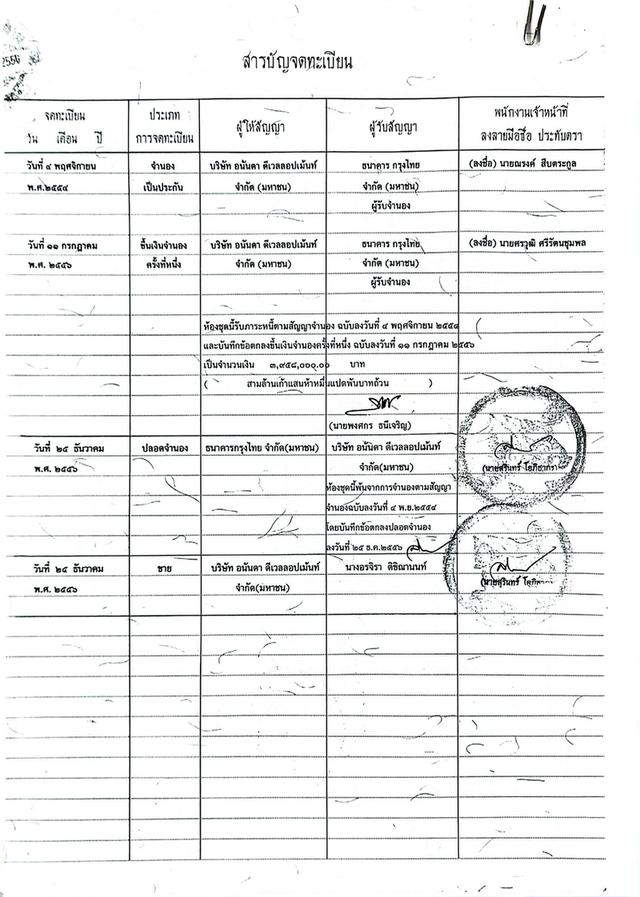 2556
สารบัญจดทะเบียน
จดทะเบียน
วัน เดือน ปี
ประเภท
การจดทะเบียน
ผู้ให้สัญญา
ผู้รับสัญญา
พนักงานเจ้าหน้าที่
ลงลายมือชื่อ ประทับตรา
วันที่ ๔ พฤศจิกายน จำนอง บริษัท อนันดา ดีเวลลอปเม้นท์ ธนาคาร กรุงไทย (ลงชื่อ) นายณรงค์ สืบตระกูล
พ.ศ.๒๕๕๔ เป็นประกัน จำกัด (มหาชน) จำกัด (มหาชน)
ผู้รับจำนอง
วันที่ ๑๑ กรกฎาคม ขึ้นเงินจำนอง บริษัท อนันดา ดีเวลลอปเม้นท์ ธนาคาร กรุงไทย (ลงชื่อ) นายศรวุฒิ ศรีรัตนชุมพล
พ.ศ. ๒๕๕๖ ครั้งที่หนึ่ง จำกัด (มหาชน) จำกัด (มหาชน)
ผู้รับจำนอง
ห้องชุดนี้รับภาระหนี้ตามสัญญาจำนอง ฉบับลงวันที่ ๔ พฤศจิกายน ๒๕๕๔
และบันทึกข้อตกลงขึ้นเงินจำนองครั้งที่หนึ่ง ฉบับลงวันที่ ๑๑ กรกฎาคม ๒๕๕๖
เป็นจำนวนเงิน ๓,๙๕๘,๐๐๐.๐๐ บาท
( สามล้านเก้าแสนห้าหมื่นแปดพันบาทถ้วน )
(นายพงศกร ธนีเจริญ)
วันที่ ๒๕ ธันวาคม ปลอดจำนอง ธนาคารกรุงไทย จำกัด(มหาชน) บริษัท อนันดา ดีเวลลอปเม้นท์
พ.ศ. ๒๕๕๖ จำกัด(มหาชน) (นายสุรินทร์
ห้องชุดนี้พ้นจากการจำนองตามสัญญา
จำนองฉบับลงวันที่ ๔ พ.ย.๒๕๕๔
โดยบันทึกข้อตกลงปลอดจำนอง
ลงวันที่ ๒๕ ธ.ค.๒๕๕๖
วันที่ ๒๕ ธันวาคม ขาย บริษัท อนันดา ดีเวลลอปเม้นท์ นางอรจิรา ติขิณานนท์ (นายสุรินทร์
พ.ศ. ๒๕๕๖ จำกัด(มหาชน)